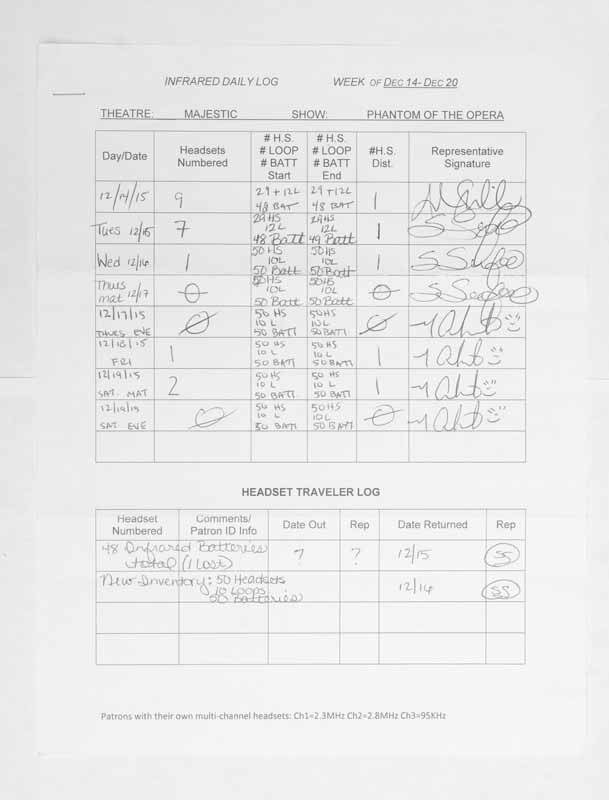 INFRARED DAILY LOG WEEK OF DEC 14- DEC 20
THEATRE: MAJESTIC SHOW: PHANTOM OF THE OPERA
Day/Date Headsets Numbered # H.S. # LOOP # BATT Start # H.S. # LOOP # BATT End #H.S. Dist. Representative Signature
12/14/15 9 29 + 12L 48 BAT 29 + 12L 48 BAT 1
Tues 12/15 7 29 HS 12L 48 Batt 29HS 12L 49 Batt 1
Wed 12/16 1 50 HS 10L 50 Batt 50HS 10L 50 Batt 1
Thurs mat 12/17 0 50HS 10L 50 Batt 50HS 10L 50 Batt 0
12/17/15 THURS EVE 0 50 HS 10 L 50 BATT 50HS 10L 50 BATT 0
12/18/15 FRI 1 50 HS 10 L 50 BATT 50 HS 10 L 50 BATT 1
12/19/15 SAT. MAT 2 50 HS 10 L 50 BATT 50 HS 10 L 50 BATT 1
12/19/15 SAT EVE 0 50 HS 10 L 50 BATT 50HS 10L 50 BATT 0
HEADSET TRAVELER LOG
Headset Numbered Comments/ Patron ID Info Date Out Rep Date Returned Rep
48 Infrared Batteries total (1 Lost) ? ? 12/15 SS
New Inventory: 50 Headsets 10 Loops 50 Batteries 12/16 SS
Patrons with their own multi-channel headsets: Ch1=2.3MHz Ch2=2.8MHz Ch3=95KHz